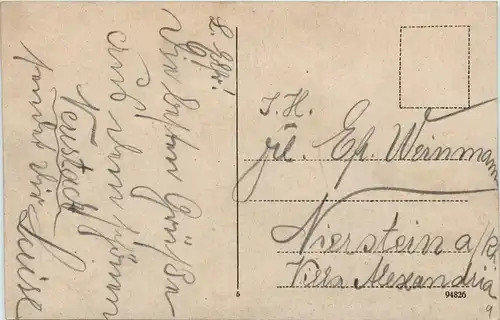 L. Elli!
Die besten Grüße
aus dem schönen
Neustadt
sendet dir
Luise
I. H.
Frl. Ep. Weinmann
Nierstein a/Rh
Villa Alexandria
5
94826